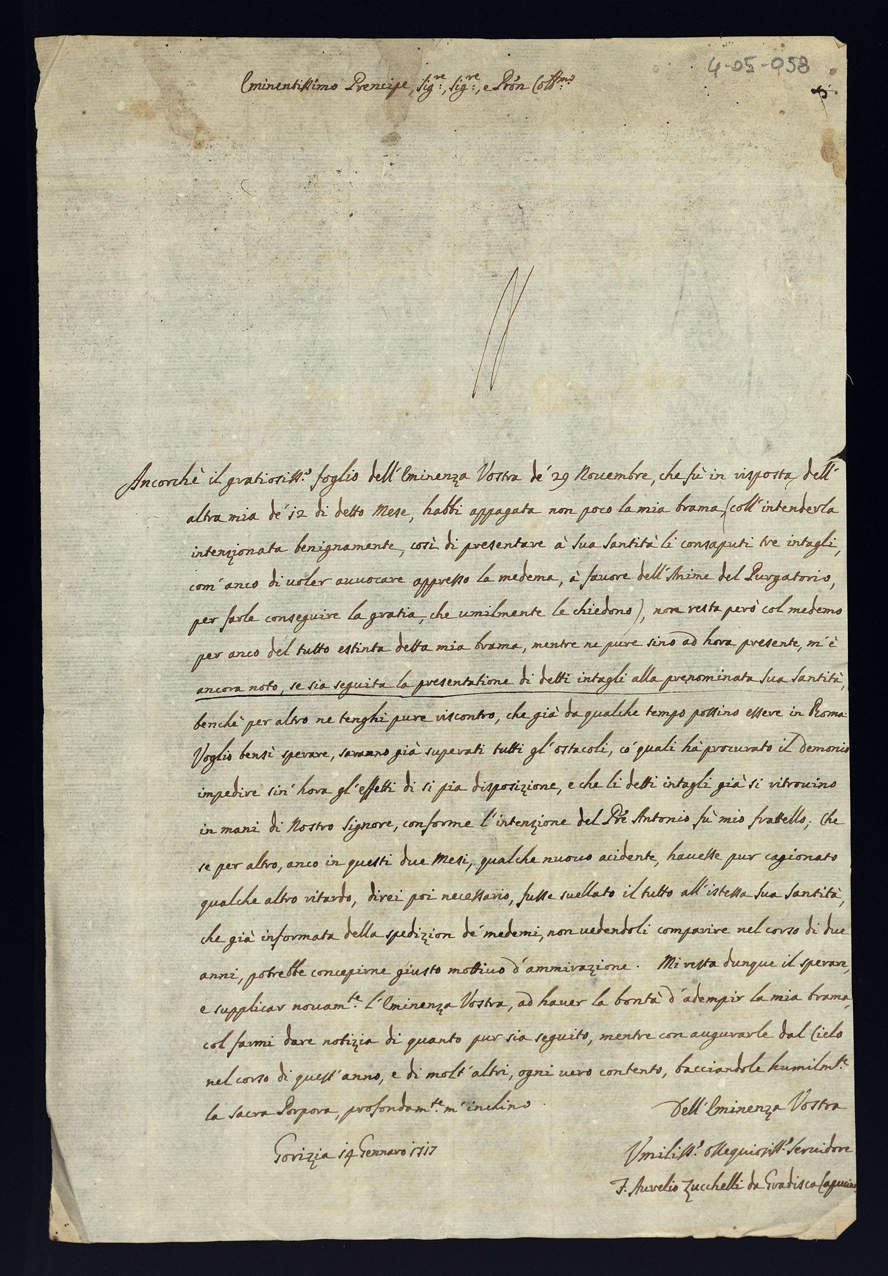 4-05-058
Eminentissimo Prencipe, Sig:re, Sig:re, e Pròn Coll:mo
Ancorchè il gratiosiss:o foglio dell'Eminenza Vostra de' 29 Novembre, che fù in risposta dell'
altra mia de' 12 di detto Mese, habbi appagata non poco la mia brama (coll'intenderla
intenzionata benignamente, così di presentare à Sua Santità li consaputi tre intagli,
com'anco di voler avvocare appresso la medema, à favore dell'Anime del Purgatorio,
per farle conseguire la gratia, che umilmente le chiedono), non resta però col medemo
per anco del tutto estinta detta mia brama, mentre ne pure sino ad hora presente, m'è
ancora noto, se sia seguita la presentatione di detti intagli alla prenominata Sua Santità,
benchè per altro ne tenghi pure riscontro, che già da qualche tempo possino essere in Roma.
Voglio bensì sperare, saranno già superati tutti gl'ostacoli, co' quali hà procurato il Demonio
impedire sin'hora gl'effetti di si pia disposizione, e che li detti intagli già si ritrovino
in mani di Nostro Signore, conforme l'intenzione del Prè Antonio fù mio fratello; Che
se per altro, anco in questi due Mesi, qualche nuovo acidente, havesse pur cagionato
qualche altro ritardo, direi poi necessario, fusse svellato il tutto all'istessa Sua Santità,
che già informata della spedizion de' medemi, non vedendoli comparire nel corso di due
anni, potrebbe concepirne giusto mottivo d'ammirazione. Mi resta dunque il sperare,
e supplicar novam:te l'Eminenza Vostra, ad haver la bontà d'adempir la mia brama,
col farmi dare notizia di quanto pur sia seguito, mentre con augurarle dal Cielo
nel corso di quest'anno, e di molt'altri, ogni vero contento, bacciandole humilm:te
la sacra Porpora, profondam:te m'inchino.
Dell'Eminenza Vostra
Gorizia 14 Gennaro 1717
Umiliss:o ossequiosiss:o Servidore
F. Aurelio Zucchelli da Gradisca Capucino